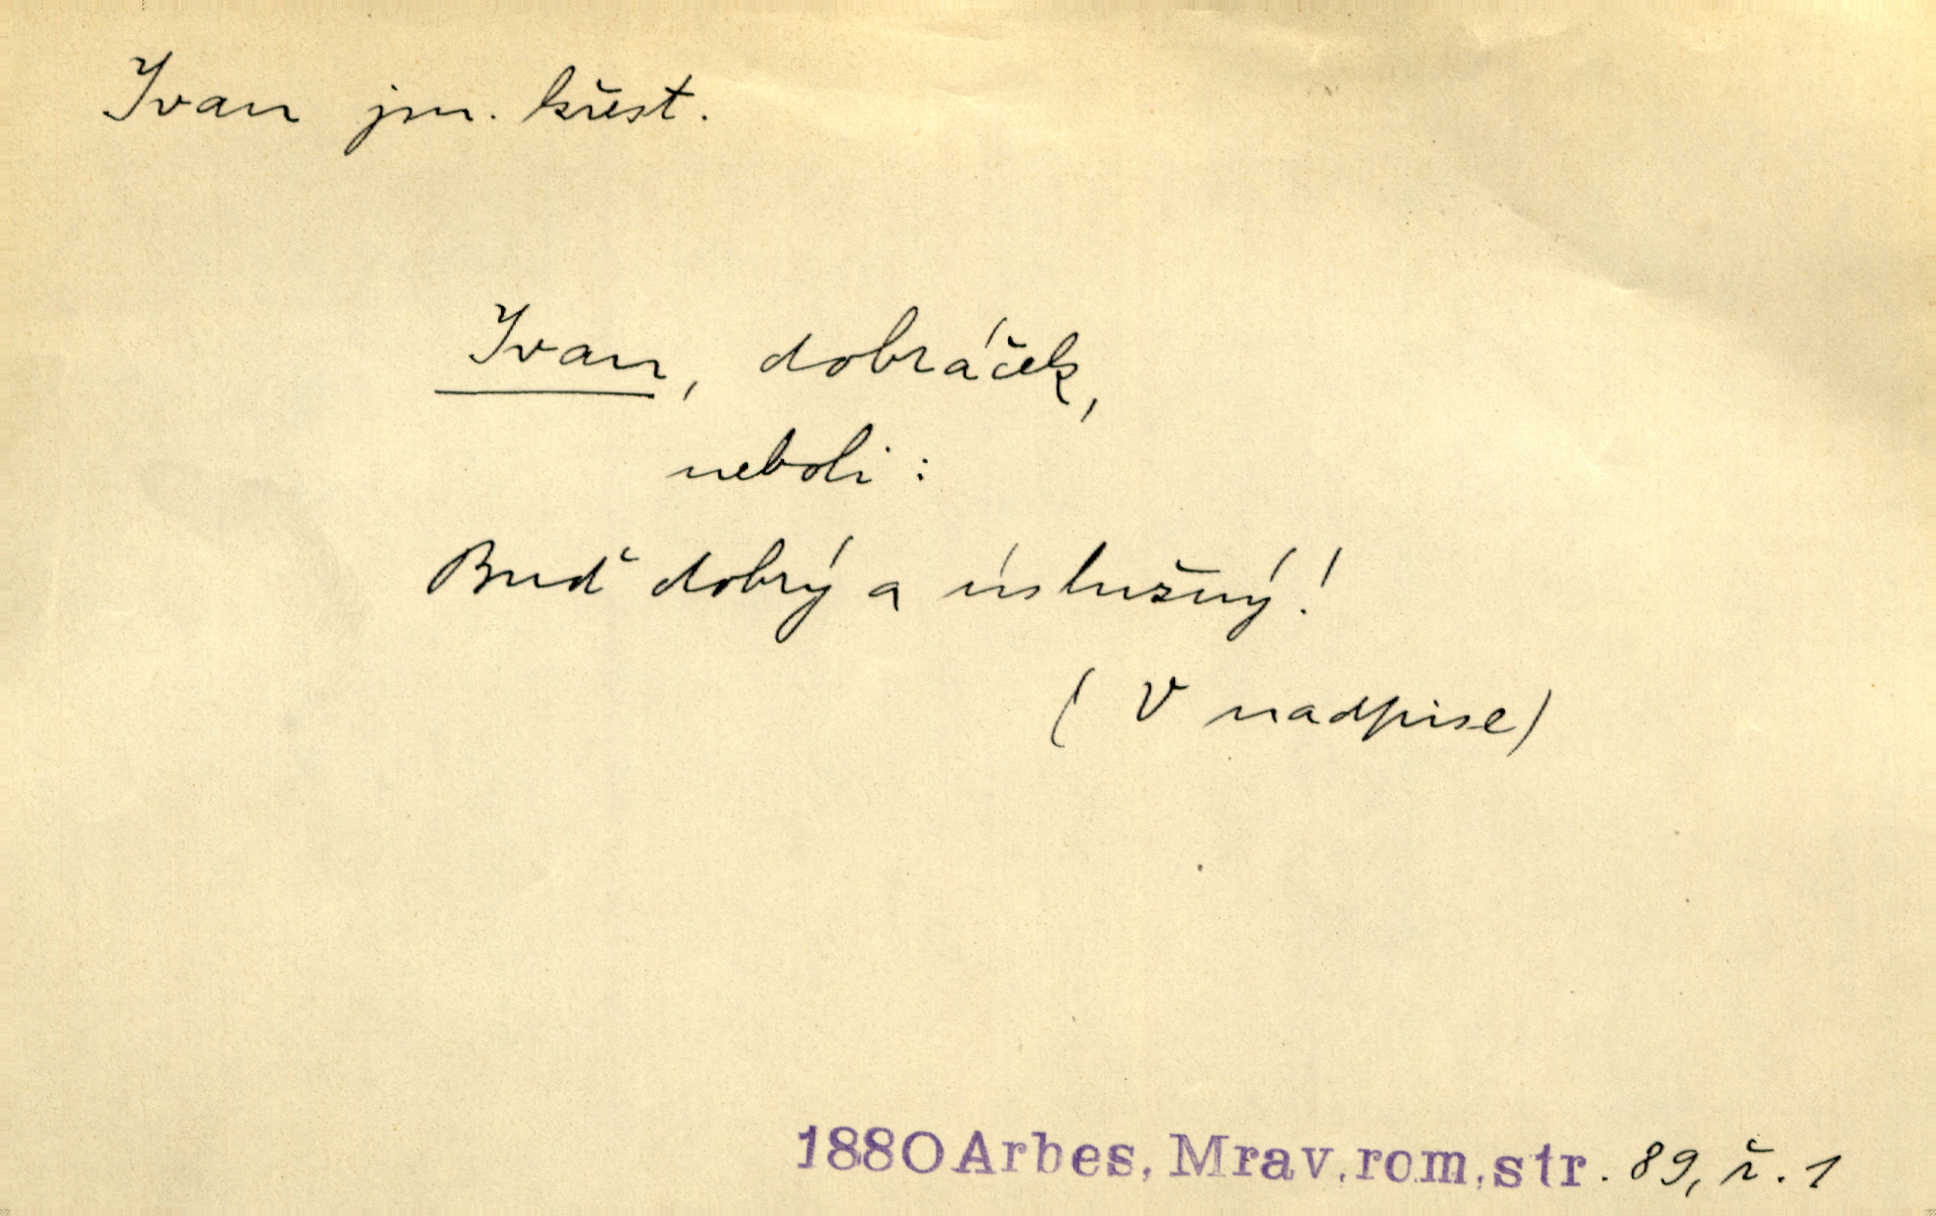 Ivan jm. křest.
Ivan, dobráček,
neboli:
Buď dobrý a úslužný!
(V nadpise)
1880 Arbes, Mrav. rom. str. 89, ř. 1